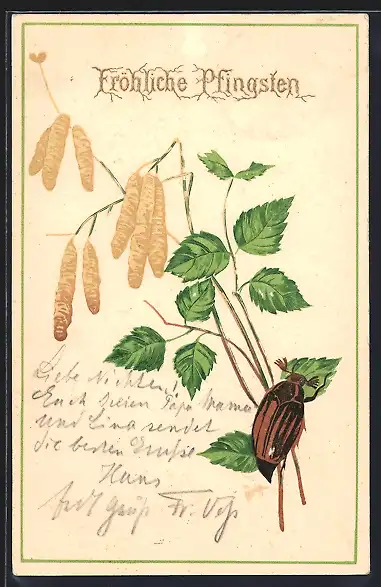 Fröhliche Pfingsten
Liebe Nichten!
Euch Papa Mama
und Lina sendet
die besten Grüße
Hans
Gruß Fr.